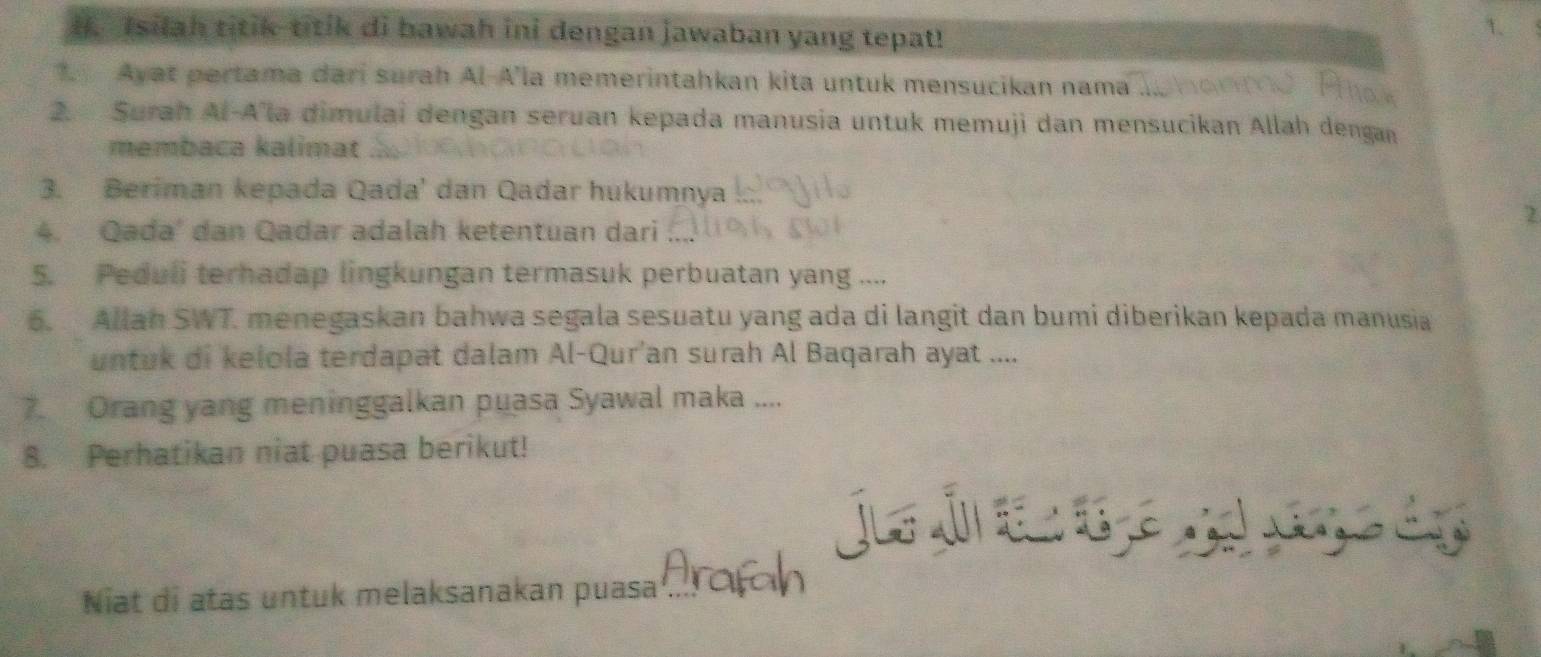 II. Isilah titik-titik di bawah ini dengan jawaban yang tepat!
1.
1. Ayat pertama dari surah Al-A'la memerintahkan kita untuk mensucikan nama ....
2. Surah Al-A'la dimulai dengan seruan kepada manusia untuk memuji dan mensucikan Allah dengan
membaca kalimat ....
3. Beriman kepada Qada' dan Qadar hukumnya .... Wajib
2
4. Qada' dan Qadar adalah ketentuan dari .... Allah SWT
5. Peduli terhadap lingkungan termasuk perbuatan yang ....
6. Allah SWT. menegaskan bahwa segala sesuatu yang ada di langit dan bumi diberikan kepada manusia
untuk di kelola terdapat dalam Al-Qur'an surah Al Baqarah ayat ....
7. Orang yang meninggalkan puasa Syawal maka ....
8. Perhatikan niat puasa berikut!
نَوَيْتُ صَوْمَ غَدٍ لِيَوْمِ عَرَفَةَ سُنَّةً اللهِ تَعَالَى
Niat di atas untuk melaksanakan puasa .... Arafah